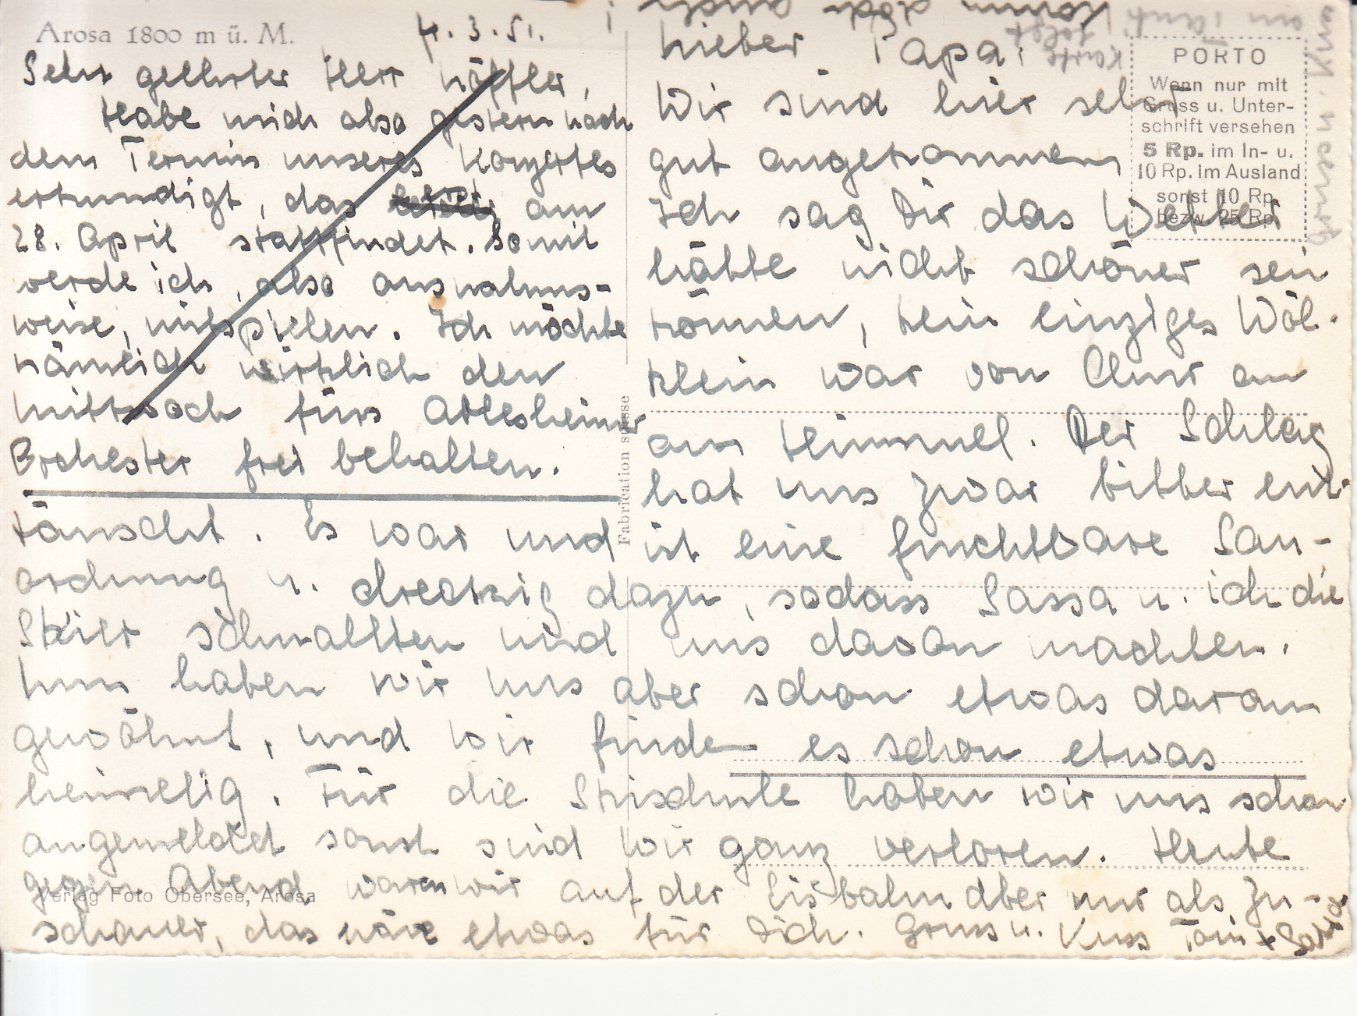 Arosa 1800 m ü. M.
4. 3. 51.
Sehr geehrter Herr Häffler,
Habe mich also gestern nach
dem Termin unseres Konzertes
erkundigt, das erst am
28. April stattfindet. Somit
werde ich, also ausnahms-
weise, mitspielen. Ich möchte
nämlich wirklich den
Mittwoch fürs Arlesheimer
Orchester frei behalten.
Lieber Papa!
Wir sind hier sehr
gut angekommen
Ich sag Dir das Wetter
hätte nicht schöner sein
können, kein einziges Wöl-
klein war von Chur an
am Himmel. Der Schlag
hat uns zwar bitter ent-
täuscht. Es war und ist eine furchtbare Sau-
ordnung u. dreckig dazu, sodass Sassa u. ich die
Skier schnallten und uns davon machten.
Nun haben wir uns aber schon etwas daran
gewöhnt, und wir finden es schon etwas
heimelig. Für die Skischule haben wir uns schon
angemeldet sonst sind wir ganz verloren. Heute
gegen Abend waren wir auf der Eisbahn aber nur als Zu-
schauer, das wäre etwas für Dich. Gruss u. Kuss
Karte
folgt
PORTO
Wenn nur mit
Gruss u. Unter-
schrift versehen
5 Rp. im In- u.
10 Rp. im Ausland
sonst 10 Rp.
bezw. 25 Rp.
Fabrication suisse
Verlag Foto Obersee, Arosa